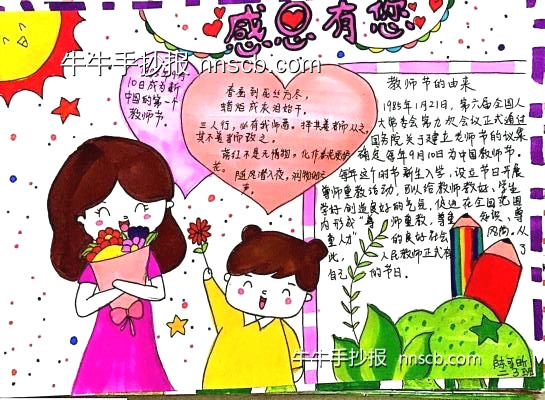 感恩有您
牛牛手抄报 nnscb.com
10日成为新
中国的第一个
教师节。
春蚕到死丝方尽,
蜡炬成灰泪始干。
三人行,必有我师焉。择其善者而从之,
其不善者而改之。
落红不是无情物,化作春泥更护
花。
随风潜入夜,润物细无
声。
教师节的由来
1985年1月21日,第六届全国人
大常务会第九次会议正式通过
国务院关于建立教师节的议案
确定每年9月10日为中国教师节。
每年这个的节新生入学,设立节日开展
尊师重教活动,可以给教师教好、学生
学好创造良好的气氛,促进在全国范围
内形成"尊师重教、尊重 知识、尊
重人才"的良好社会 风尚。从
此,人民教师正式有了
自己的节日。
牛牛手抄报 nnscb.com
二3班